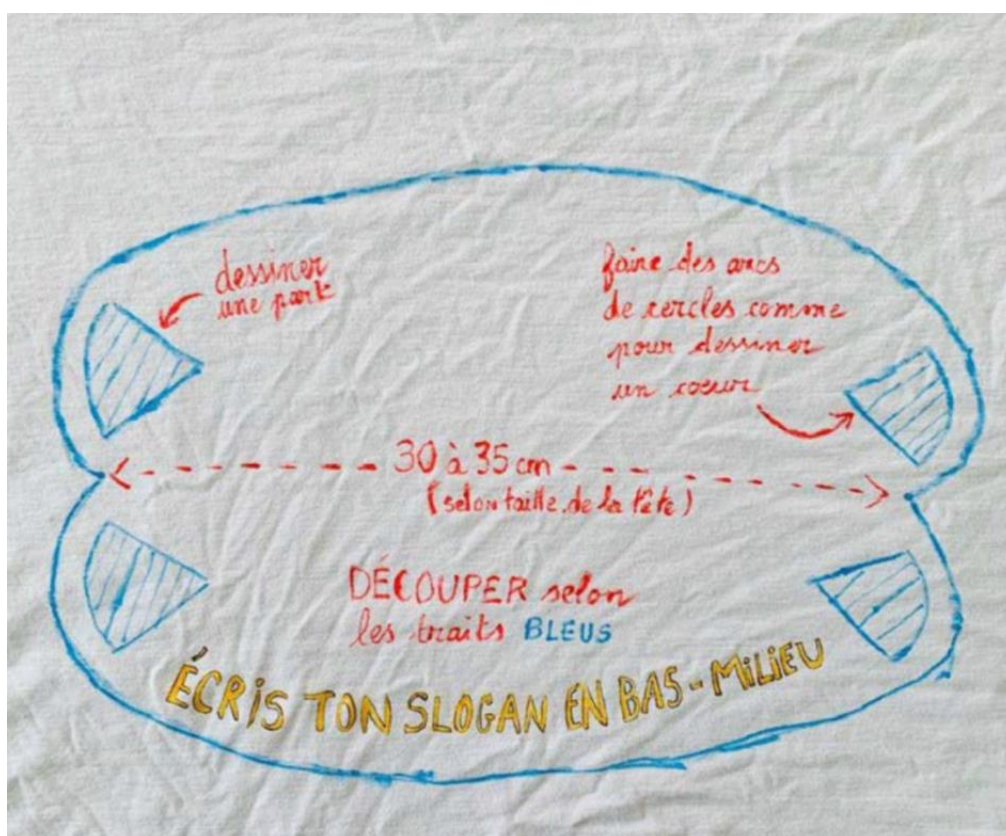 dessiner
une part
faire des arcs
de cercles comme
pour dessiner
un coeur
30 à 35 cm
(selon taille de la tête)
DÉCOUPER selon
les traits BLEUS
ÉCRIS TON SLOGAN EN BAS-MILIEU